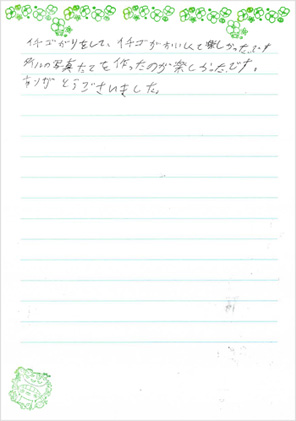 イチゴがりをして、イチゴがおいしくて楽しかったです
の写真たてを作ったのが楽しかったです。
ありがとうございました。